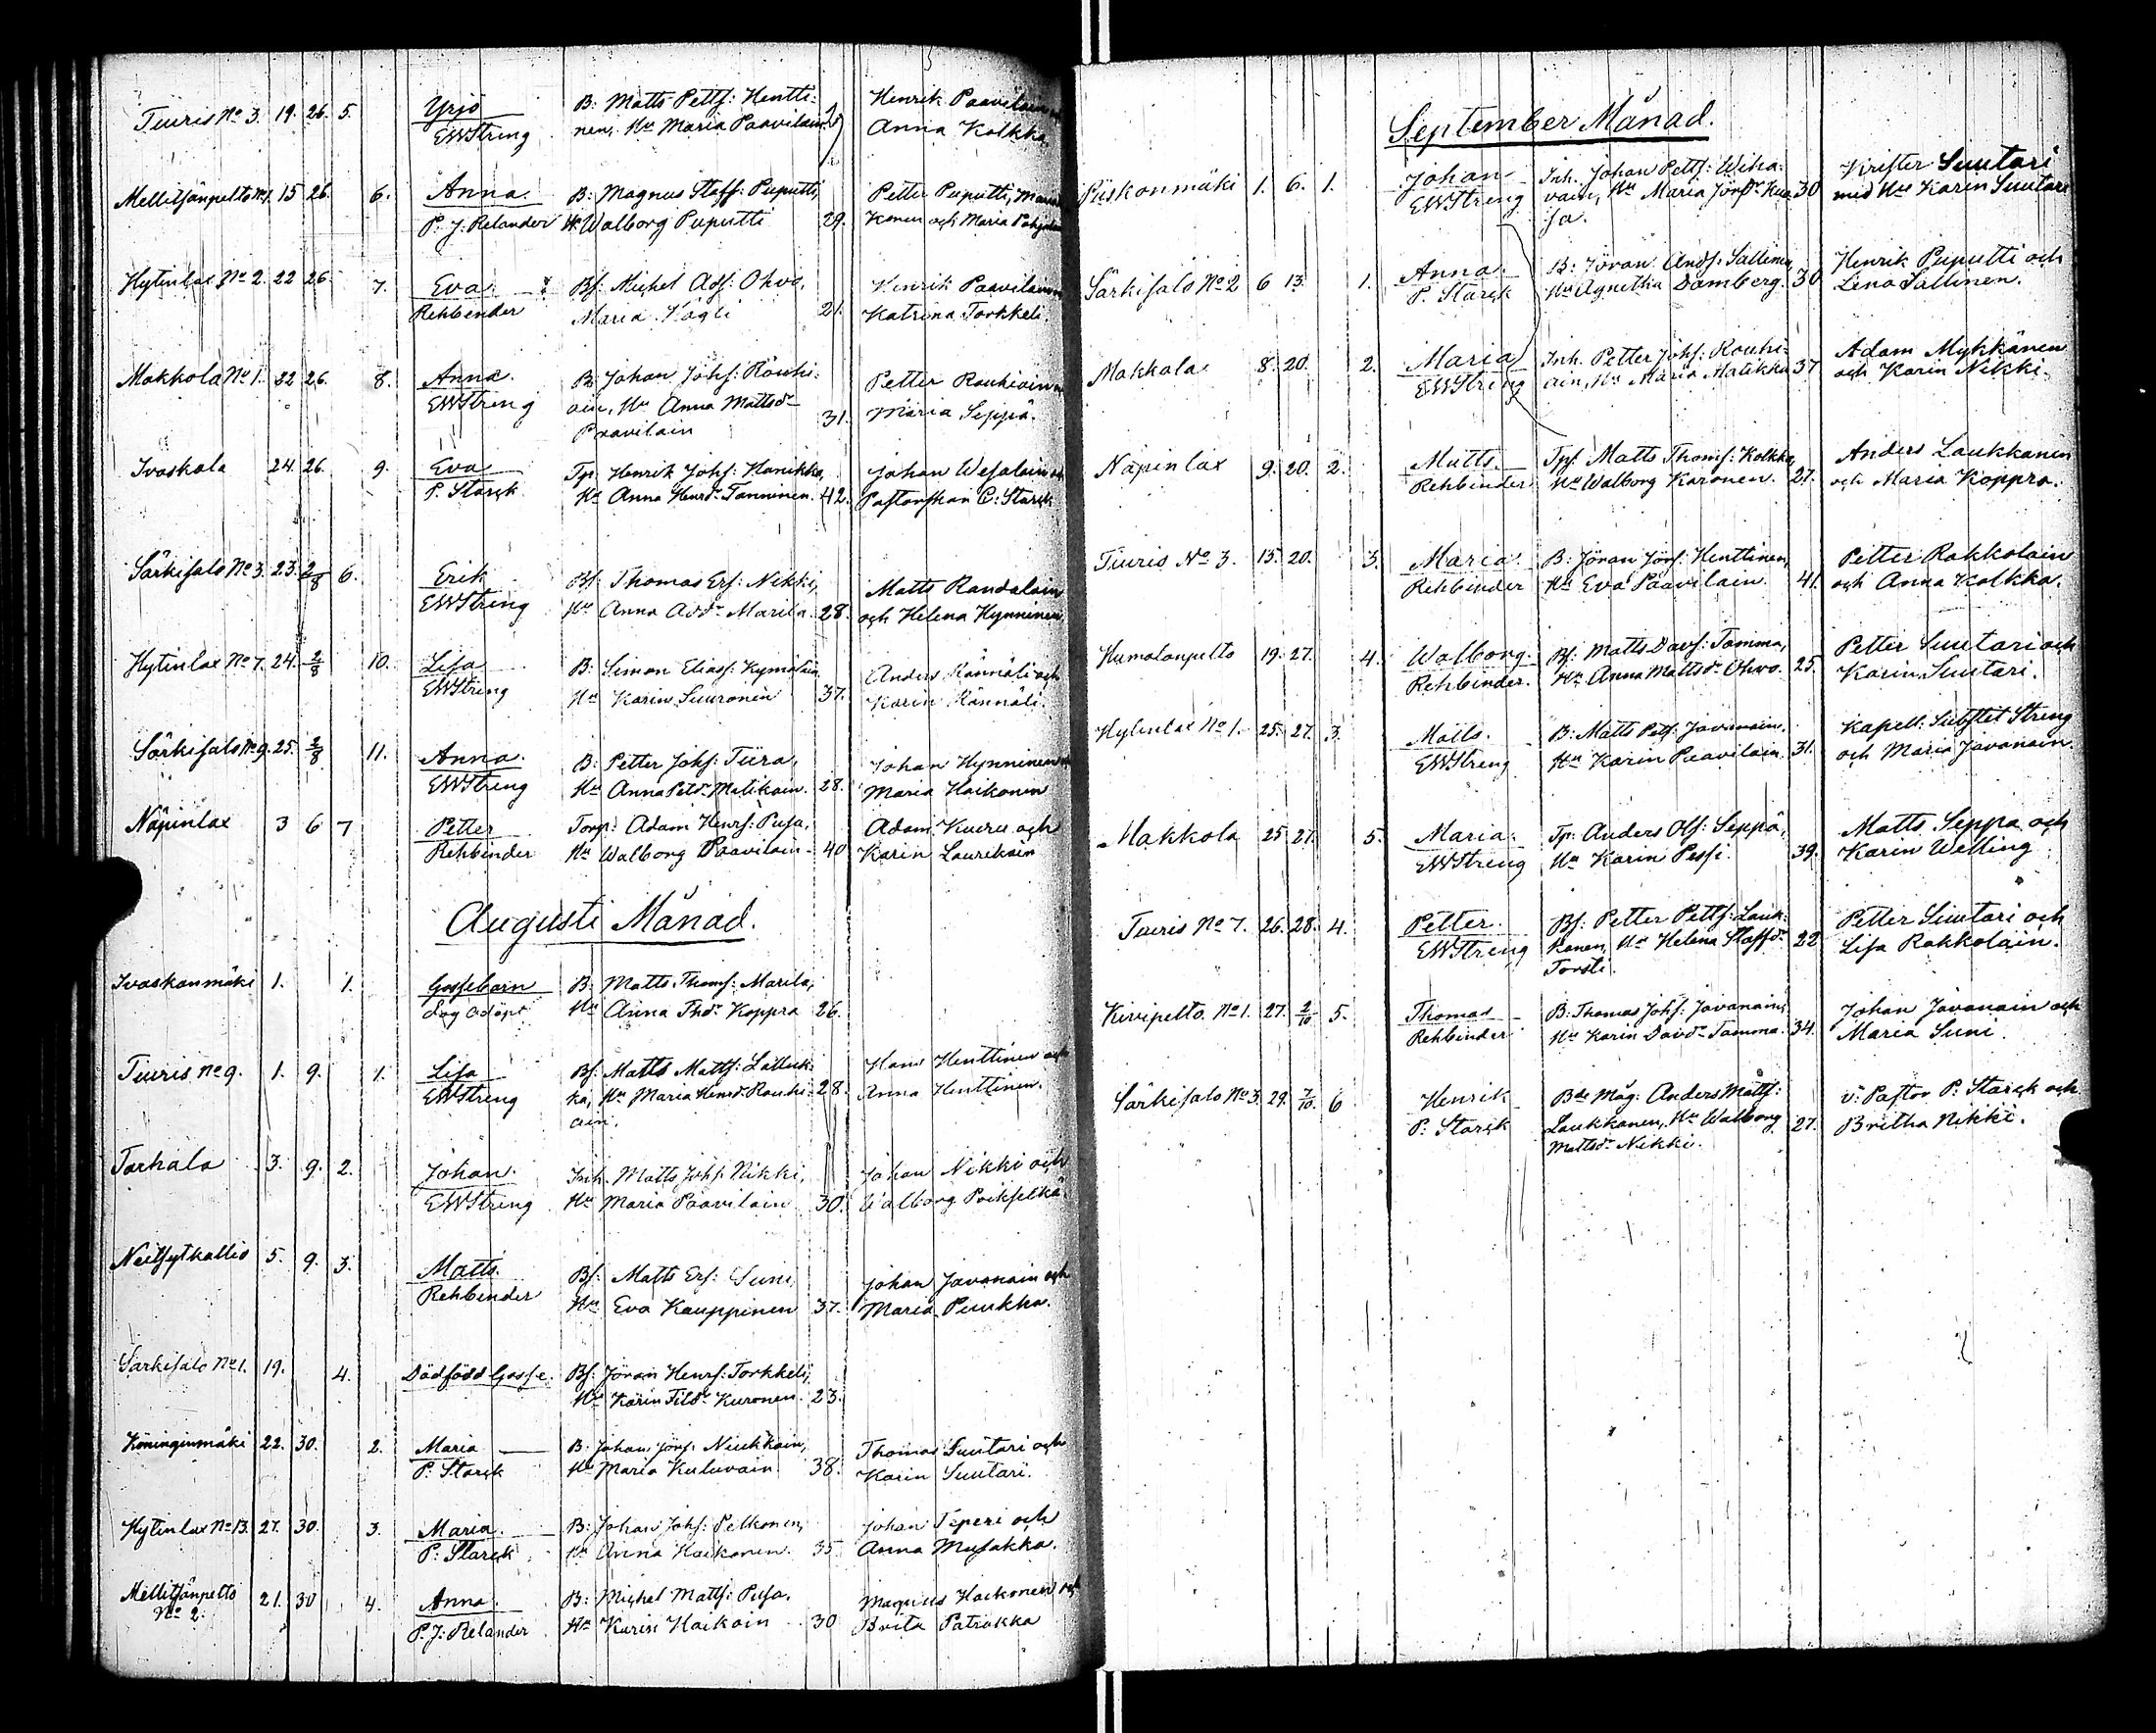 Tiuris No 3. 19. 26. 5. Yrjö B: Matts Pettf: Hentti- Henrik Paavilain
EWStreng nen, Hu Maria Paavilain Anna Kolkka
Mellitsänpelto No 1. 15 26. 6. Anna. B: Magnus Staff: Puputti, Petter Puputti, Maria
P. J. Relander H. Walborg Puputti 29. Konen och Maria
Hytinlax No 2. 22 26. 7. Eva Bf: Michel Adf: Ohvo, Henrik Paavilainen
Rehbinder Maria Kägli 21. Katrina Torkkeli.
Mokkola No 1. 22 26. 8. Anna. B: Johan Johf: Rouhi- Petter Rouhiainen
EWStreng ain, Hu Anna Mattsdr 31. Maria Seppä.
Paavilain
Ivaskala 24. 26. 9. Eva Tp: Henrik Johf: Hanikka, Johan Wesalain
P. Starck Hu Anna Henrdr Tanninen. 42. Pastorskan C: Starck
Särkisalo No 3. 23. 2/8 6. Erik Bf: Thomas Erf: Nikki, Matts Randalain
EWStreng Hu Anna Addr Marila 28. och Helena Hynninen.
Hytinlax No 7. 24. 2/8 10. Lisa B: Simon Eliasf: Kymäläin Anders Kännäli och
EWStreng Hu Karin Suuronen 37. Karin Kännäli.
Särkisalo No 9. 25. 2/8 11. Anna. B: Petter Johf: Tiira, Johan Hynninen
EWStreng Hu Anna Petdr Matikain. 28. Maria Haikonen
Näpinlax 3 6 7 Petter Torp: Adam Henrf: Pusa, Adam Kuuru och
Rehbinder Hu Walborg Paavilain 40 Karin Laurikain
Augusti Månad.
Ivaskanmäki 1. 1. Gossebarn B: Matts Thomf: Marila,
Hu Anna Thdr Koppra 26.
Tiuris No 9. 1. 9. 1. Lisa Bf: Matts Mattf: Lälluk- Hans Henttinen och
EWStreng ka, Hu Maria Henrdr Rouhi- 28. Anna Henttinen.
ain.
Tarhala 3. 9. 2. Johan. Inh. Matts Johf: Nikki, Johan Nikki och
EWStreng Hu Maria Paavilain 30. Walborg Poikselkä.
Neitsytkallio 5. 9. 3. Matts. Bf: Matts Erf: Suni Johan Javanain och
Rehbinder Hu Eva Kauppinen 37. Maria Puukka.
Särkisalo No 1. 19. 4. Dödfödd Gosse. Bf: Jöran Henrf: Torkkeli,
Hu Karin Kuronen. 23.
Köninginmäki 22. 30. 2. Maria B: Johan Jörf: Niukkain, Thomas Suutari och
P. Starck Hu Maria Kuluvain 38. Karin Suutari.
Hytinlax No 13. 27. 30. 3. Maria. B: Johan Johf: Pelkonen, Johan Teperi och
P: Starck Hu Anna Haikonen. 35. Anna Musakka.
Mellitsänpelto 21. 30 4. Anna. B: Michel Mattf: Pusa. Magnus Haikonen och
No 2. P. J: Relander Hu Karin Haikain 30 Brita Patrakka
September Månad.
Piiskonmäki 1. 6. 1. Johan Inh. Johan Pettf: Wiha- Krister Suutari
EWStreng vain, Hu Maria Jörsdr Kuo- 30 med Hu Karin Suutari
sa.
Särkisalo No 2 6 13. 1. Anna. B: Jöran Andf: Sallinen, Henrik Puputti och
P. Starck Hu Agnetha Damberg. 30 Lena Sallinen.
Makkola 8. 20. 2. Maria Inh. Petter Johf: Rouhi- Adam Mykkänen
EWStreng ain, Hu Maria Matikka 37 och Karin Nikki.
Näpinlax 9. 20. 2. Matts. Tpf: Matts Thomf: Kolkka, Anders Laukkanen
Rehbinder Hu Walborg Karonen. 27. och Maria Koppra.
Tiuris No 3. 15. 20. 3. Maria. B: Jöran Jörf: Henttinen, Petter Rakkolain
Rehbinder Hu Eva Paavilain. 41. och Anna Kolkka.
Humalanpelto 19. 27. 4. Walborg. Bf: Matts Davf: Tamma, Petter Suutari och
Rehbinder. Hu Anna Mattsdr Ohvo. 25. Karin Suutari.
Hytinlax No 1. 25. 27. 3. Matts. B: Matts Petf: Javanain, Kapell: Subst:et Streng
EWStreng Hu Karin Paavilain. 31. och Maria Javanain.
Makkola 25 27. 5. Maria. Tp: Anders Olf: Seppä, Matts Seppä och
EWStreng Hu Karin Pessi. 39. Karin Welling
Tiuris No 7. 26. 28. 4. Petter. Bf: Petter Pettf: Lauk- Petter Suutari och
EWStreng kanen, Hu Helena Staffdr 22 Lisa Rakkolain.
Torsti.
Kivipelto No 1. 27. 2/10 5. Thomas B: Thomas Johf: Javanain, Johan Javanain och
Rehbinder Hu Karin Davdr Tamma. 34. Maria Suni.
Särkisalo No 3. 29. 7/10 6 Henrik Bde Måg: Anders Mattf: v: Pastor P. Starck och
P: Starck Laukkanen, Hu Walborg 27. Britha Nikki.
Mattsdr Nikki.